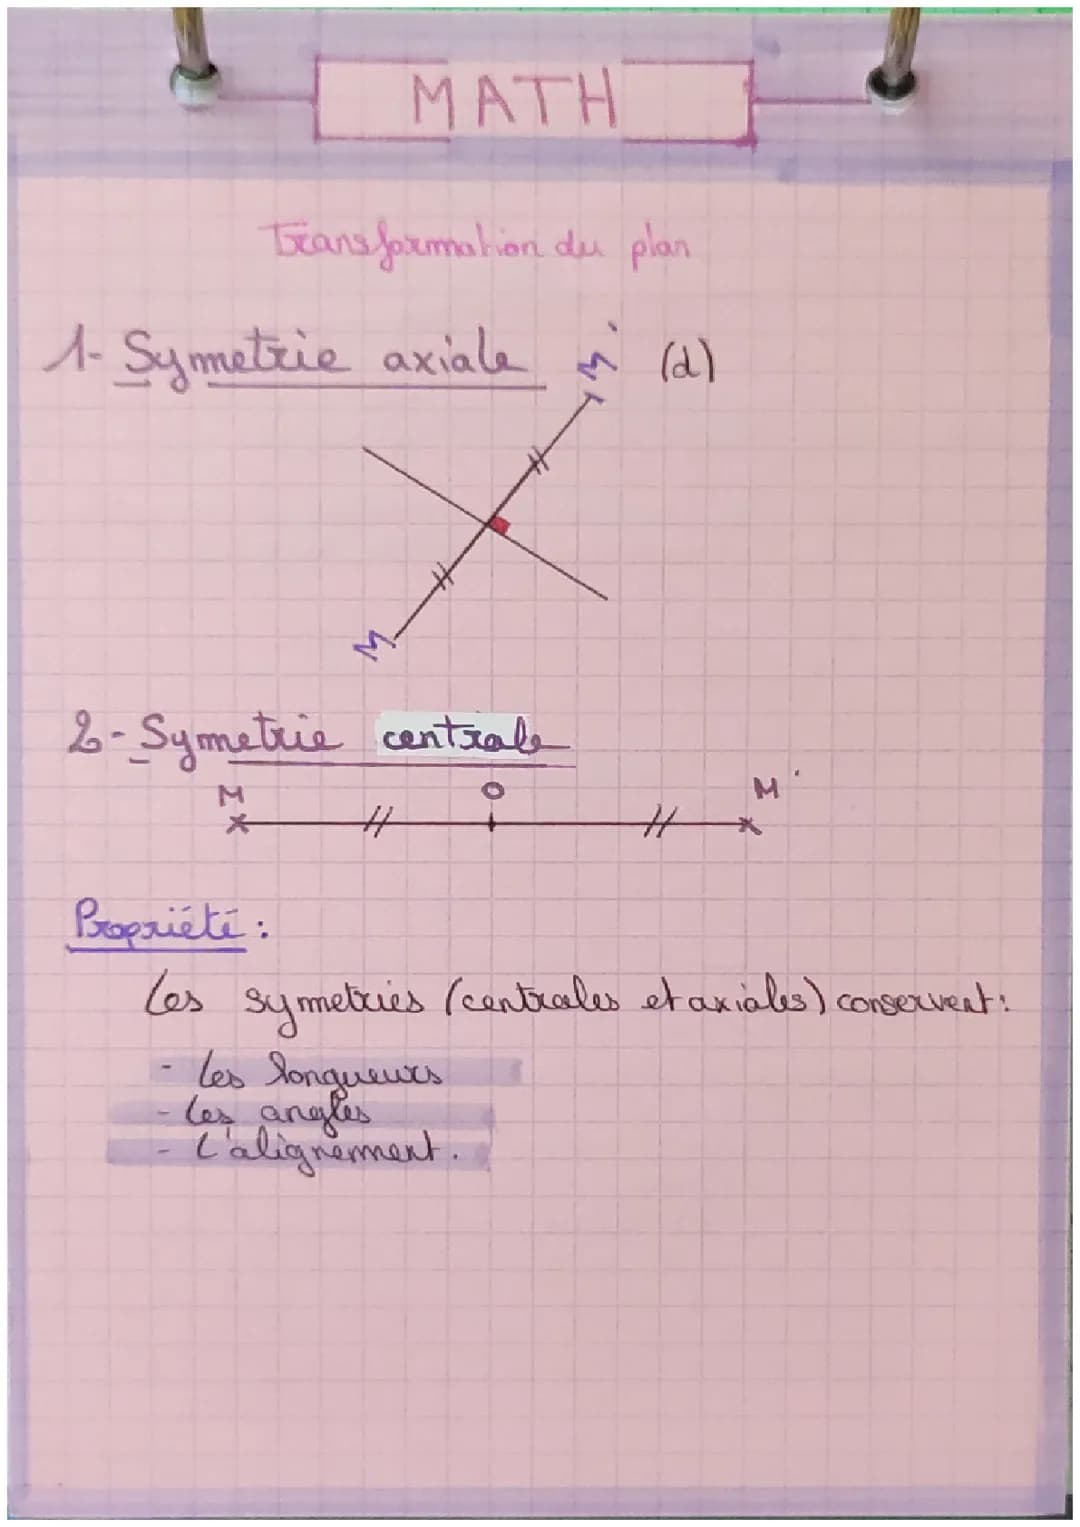 MATH
Transformation du plan
1- Symetrie axiale
M' (d)
M
2- Symetrie centrale
M O M'
Propriété :
Les symetries (centrales et axiales) conservent :
- Les longueurs
- Les angles
- L'alignement.